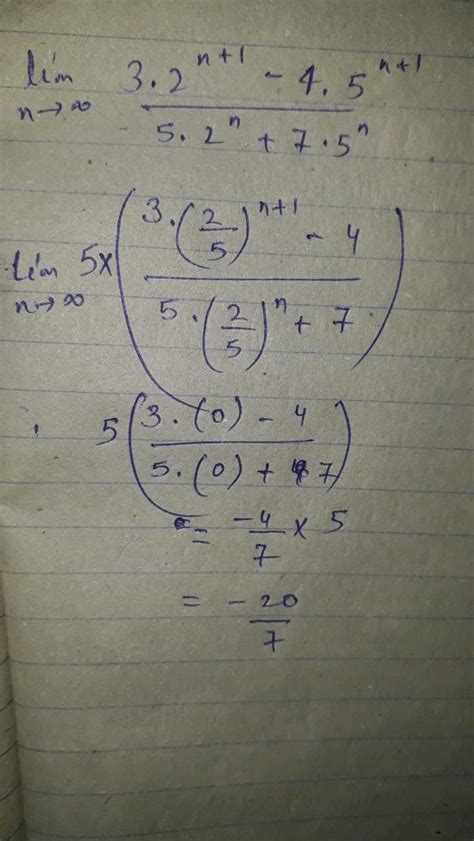 lim n→∞ (3.2^(n+1) - 4.5^(n+1)) / (5.2^n + 7.5^n)
lim n→∞ 5x((3.(2/5)^(n+1) - 4) / (5.(2/5)^n + 7))
5((3.(0) - 4) / (5.(0) + 7))
= -4/7 x 5
= -20/7